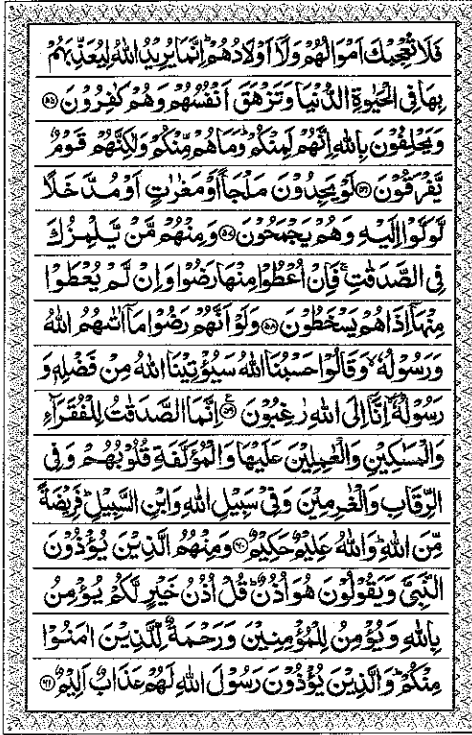 فَلَا تُعْجِبْكَ اَمْوَالُهُمْ وَلَآ اَوْلَادُهُمْ ؕ اِنَّمَا يُرِيْدُ اللّٰهُ لِيُعَذِّبَهُمْ
بِهَا فِى الْحَيٰوةِ الدُّنْيَا وَتَزْهَقَ اَنْفُسُهُمْ وَهُمْ كٰفِرُوْنَ ﴿۵۵﴾
وَيَحْلِفُوْنَ بِاللّٰهِ اِنَّهُمْ لَمِنْكُمْ ؕ وَمَا هُمْ مِّنْكُمْ وَلٰكِنَّهُمْ قَوْمٌ
يَّفْرَقُوْنَ ﴿۵۶﴾ لَوْ يَجِدُوْنَ مَلْجَاً اَوْ مَغٰرٰتٍ اَوْ مُدَّخَلًا
لَّوَلَّوْا اِلَيْهِ وَهُمْ يَجْمَحُوْنَ ﴿۵۷﴾ وَمِنْهُمْ مَّنْ يَّلْمِزُكَ
فِى الصَّدَقٰتِ ۚ فَاِنْ اُعْطُوْا مِنْهَا رَضُوْا وَاِنْ لَّمْ يُعْطَوْا
مِنْهَآ اِذَا هُمْ يَسْخَطُوْنَ ﴿۵۸﴾ وَلَوْ اَنَّهُمْ رَضُوْا مَآ اٰتٰىهُمُ اللّٰهُ
وَرَسُوْلُهٗ ۙ وَقَالُوْا حَسْبُنَا اللّٰهُ سَيُؤْتِيْنَا اللّٰهُ مِنْ فَضْلِهٖ وَ
رَسُوْلُهٗٓ ۙ اِنَّآ اِلَى اللّٰهِ رٰغِبُوْنَ ﴿۵۹﴾ اِنَّمَا الصَّدَقٰتُ لِلْفُقَرَآءِ
وَالْمَسٰكِيْنِ وَالْعٰمِلِيْنَ عَلَيْهَا وَالْمُؤَلَّفَةِ قُلُوْبُهُمْ وَفِى
الرِّقَابِ وَالْغٰرِمِيْنَ وَفِىْ سَبِيْلِ اللّٰهِ وَابْنِ السَّبِيْلِ ؕ فَرِيْضَةً
مِّنَ اللّٰهِ ؕ وَاللّٰهُ عَلِيْمٌ حَكِيْمٌ ﴿۶۰﴾ وَمِنْهُمُ الَّذِيْنَ يُؤْذُوْنَ
النَّبِىَّ وَيَقُوْلُوْنَ هُوَ اُذُنٌ ؕ قُلْ اُذُنُ خَيْرٍ لَّكُمْ يُؤْمِنُ
بِاللّٰهِ وَيُؤْمِنُ لِلْمُؤْمِنِيْنَ وَرَحْمَةٌ لِّلَّذِيْنَ اٰمَنُوْا
مِنْكُمْ ؕ وَالَّذِيْنَ يُؤْذُوْنَ رَسُوْلَ اللّٰهِ لَهُمْ عَذَابٌ اَلِيْمٌ ﴿۶۱﴾